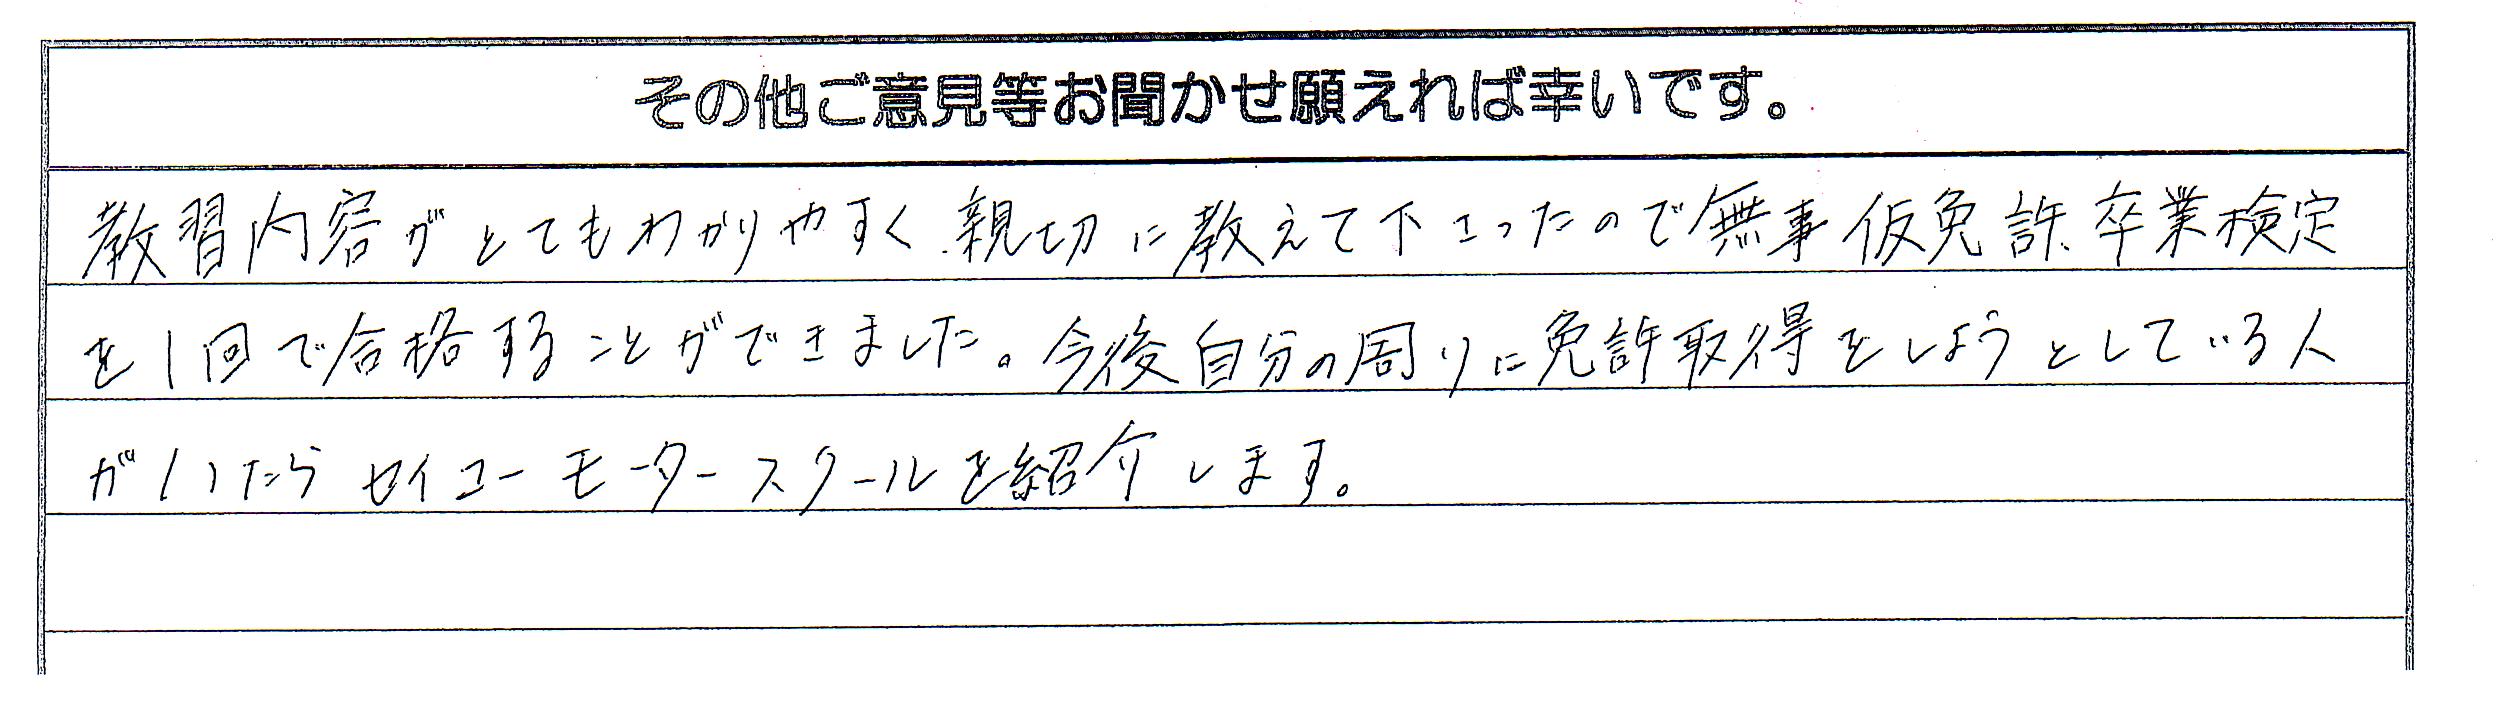 その他ご意見等お聞かせ願えれば幸いです。
教習内容がとてもわかりやすく、親切に教えて下さったので無事仮免許、卒業検定
を1回で合格することができました。今後自分の周りに免許取得をしようとしている人
がいたらセイコーモータースクールを紹介します。